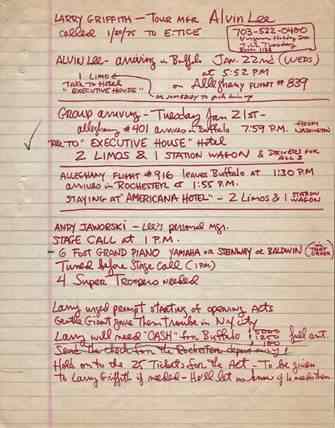 LARRY GRIFFITH - TOUR MGR Alvin Lee
called 1/20/75 to E.TICE
703-522-0400
until Tuesday
ALVIN LEE - arriving in Buffalo JAN 22nd (WEDS)
at 5:52 P.M
1 LIMO
TAKE TO HOTEL
"EXECUTIVE HOUSE"
on ALLEGHENY FLIGHT #839
or someone to pick him up
Group arriving - Tuesday Jan 21st -
allegheny #401 arrives in Buffalo 7:59 P.M. FROM WASHINGTON
TO "EXECUTIVE HOUSE" Hotel
2 LIMOS & 1 STATION WAGON & DRIVERS FOR ALL 3
ALLEGHANY FLIGHT #916 leaves Buffalo at 1:30 PM
arrives in ROCHESTER at 1:55 P.M.
STAYING AT "AMERICANA HOTEL" - 2 Limos & 1 STATION WAGON
ANDY JAWORSKI - Lee's personal mgr.
STAGE CALL at 1 P.M.
- 6 FOOT GRAND PIANO YAMAHA or STEINWAY or BALDWIN
Tuned before Stage call (1 PM)
4 Super Troopers needed
Larry urged prompt starting of opening Acts
Gentle Giant gave Them Trouble in N.Y. City
Larry will need "CASH" for Buffalo
Send the check for the Rochester
Hold on to the 25 Tickets for the Act - To be given
to Larry Griffith if needed - He'll let us know if he needs them